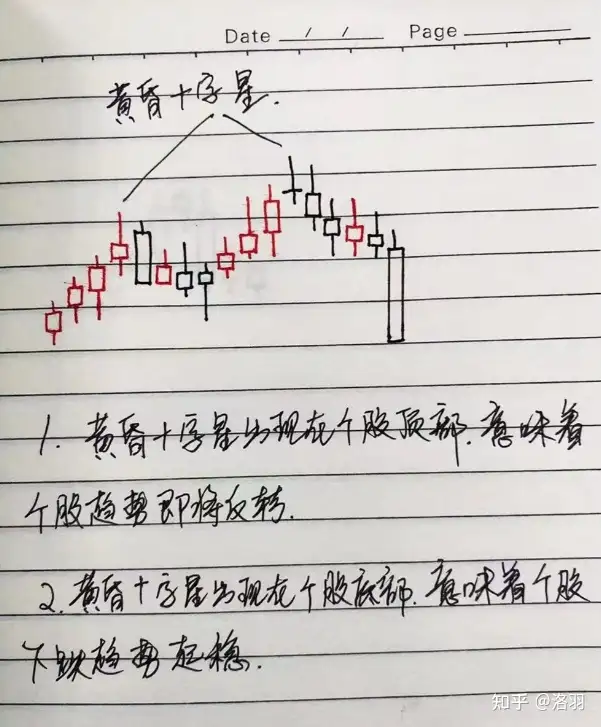 Date / / Page
黄昏十字星.
1. 黄昏十字星出现在个股顶部.意味着
个股趋势即将反转.
2.黄昏十字星出现在个股底部.意味着个股
下跌趋势起稳.
知乎 @洛羽